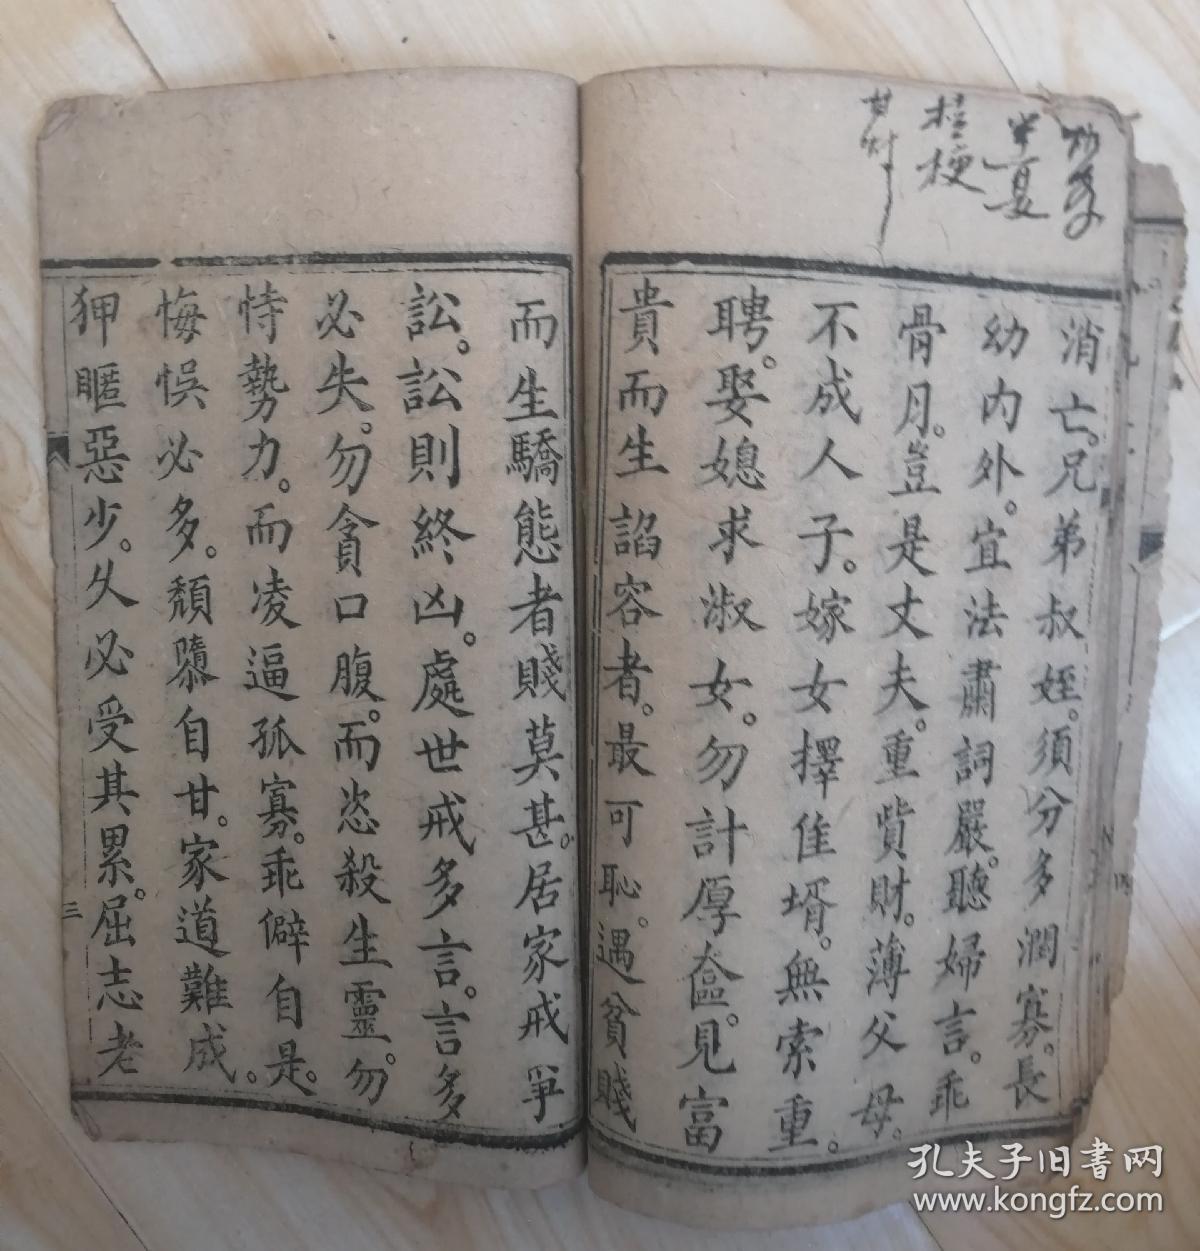 半夏
桔梗
消亡。兄弟叔姪。須分多潤寡。長
幼內外。宜法肅詞嚴。聽婦言。乖
骨月。豈是丈夫。重貲財。薄父母。
不成人子。嫁女擇佳壻。無索重。
聘。娶媳求淑女。勿計厚奩。見富
貴而生諂容者。最可恥。遇貧賤
而生驕態者賤莫甚。居家戒爭
訟。訟則終凶。處世戒多言。言多
必失。勿貪口腹。而恣殺生靈。勿
恃勢力。而凌逼孤寡。乖僻自是。
悔悞必多。頹隳自甘。家道難成。
狎暱惡少。久必受其累。屈志老
三
孔夫子旧書网
www.kongfz.com